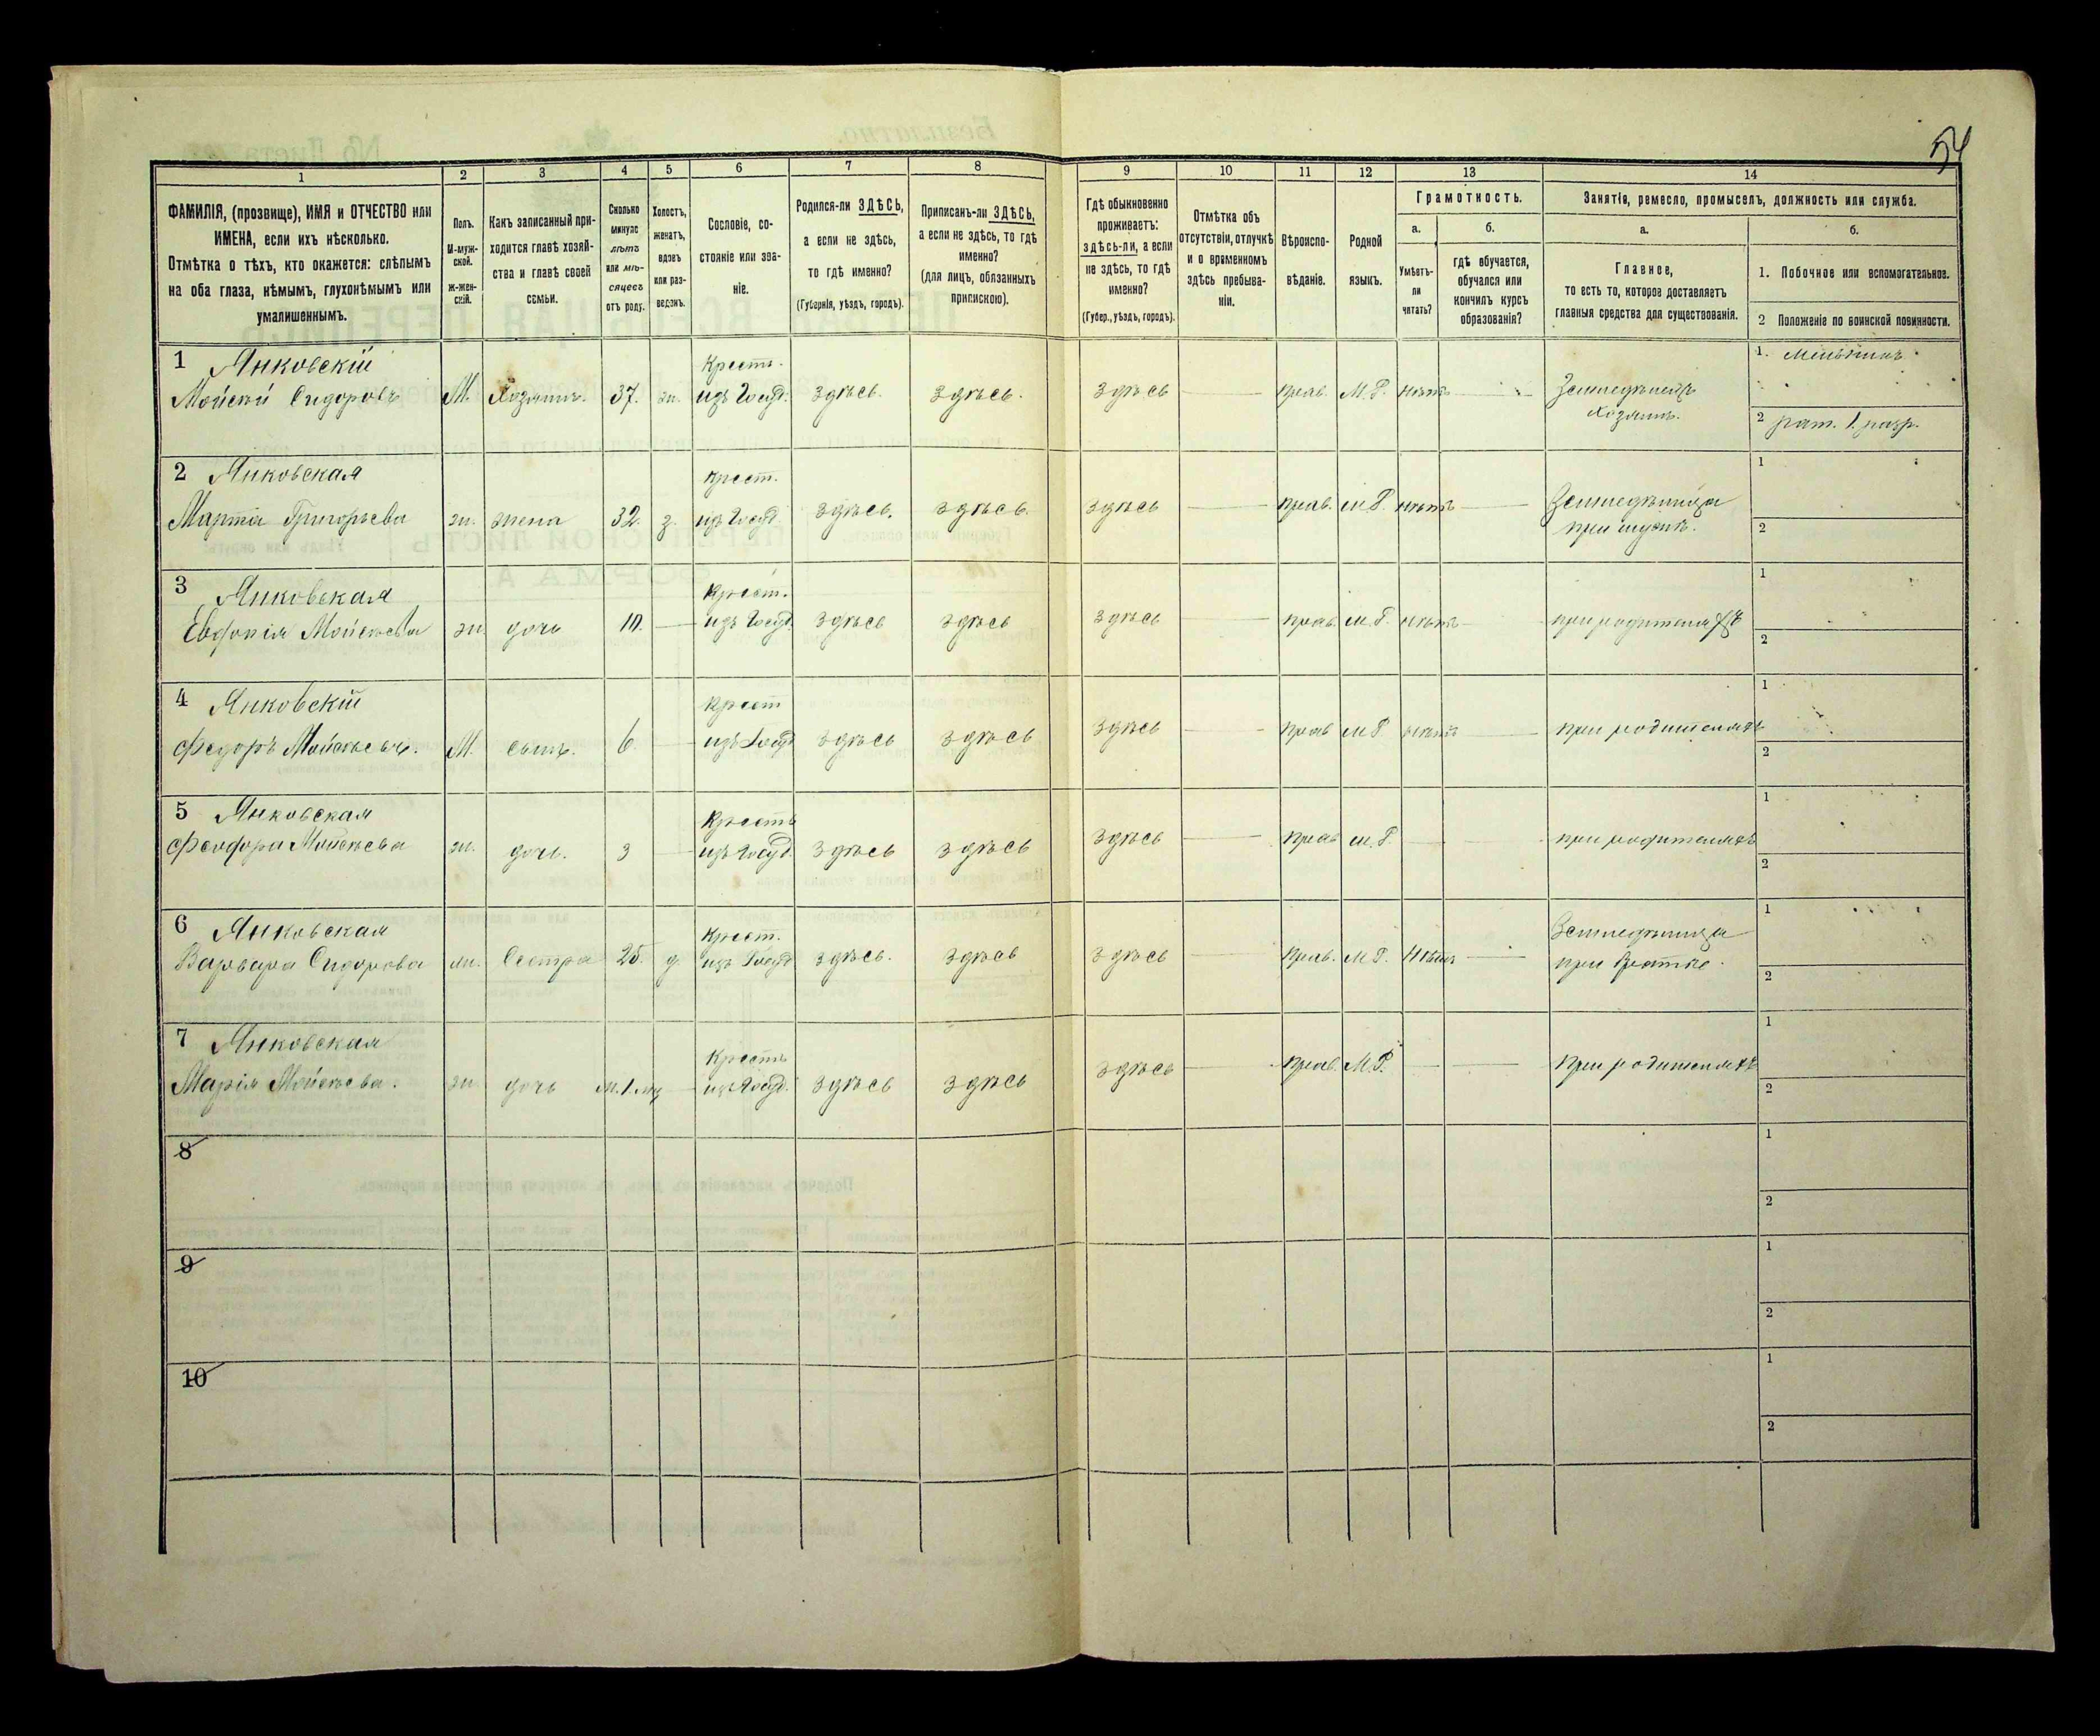 54
1 2 3 4 5 6 7 8 9 10 11 12 13 14
ФАМИЛІЯ, (прозвище), ИМЯ и ОТЧЕСТВО или
ИМЕНА, если ихъ нѣсколько.
Отмѣтка о тѣхъ, кто окажется: слѣпымъ
на оба глаза, нѣмымъ, глухонѣмымъ или
умалишеннымъ.
Полъ.
М-муж-
ской.
ж-жен-
скій.
Какъ записанный при-
ходится главѣ хозяй-
ства и главѣ своей
семьи.
Сколько
минуло
лѣтъ
или мѣ-
сяцевъ
отъ роду.
Холостъ,
женатъ,
вдовъ
или раз-
веденъ.
Сословіе, со-
стояніе или зва-
ніе.
Родился-ли ЗДѢСЬ,
а если не здѣсь,
то гдѣ именно?
(Губернія, уѣздъ, городъ).
Приписанъ-ли ЗДѢСЬ,
а если не здѣсь, то гдѣ
именно?
(для лицъ, обязанныхъ
припискою).
Гдѣ обыкновенно
проживаетъ:
здѣсь-ли, а если
не здѣсь, то гдѣ
именно?
(Губер., уѣздъ, городъ).
Отмѣтка объ
отсутствіи, отлучкѣ
и о временномъ
здѣсь пребыва-
ніи.
Вѣроиспо-
вѣданіе.
Родной
языкъ.
Грамотность.
а.
Умѣетъ-
ли
читать?
б.
гдѣ обучается,
обучался или
кончилъ курсъ
образованія?
Занятія, ремесло, промыселъ, должность или служба.
а.
Главное,
то есть то, которое доставляетъ
главныя средства для существованія.
б.
1. Побочное или вспомогательное.
2 Положеніе по воинской повинности.
1 Янковскій Крест. 1.
Мойсей Сидоровъ М. Хозяинъ. 37. ж. изъ Госуд. здѣсь. здѣсь. здѣсь прав. М.Р. нѣтъ Земледѣлецъ
хозяинъ. 2 рат. 1 разр.
2 Янковская Крест. 1
Марта Григорьева ж. жена 32. з. изъ Госуд. здѣсь. здѣсь. здѣсь прав. М.Р. нѣтъ
при мужѣ. 2
3 Янковская Крест. 1
Мойсеева ж. дочь 10. изъ Госуд. здѣсь здѣсь здѣсь прав. М.Р. нѣтъ при родителяхъ 2
4 Янковскій Крест 1
Федоръ М. сынъ. 6 изъ Госуд здѣсь здѣсь здѣсь прав М.Р. нѣтъ при родителяхъ 2
5 Янковская Крестъ 1
Феодора Мойсеева ж. дочь. 3 изъ Госуд. здѣсь здѣсь здѣсь прав М.Р. при родителяхъ 2
6 Янковская Крест. 1
Варвара Сидорова ж. Сестра 25. д. изъ Госуд здѣсь. здѣсь здѣсь прав. М.Р. Нѣтъ
при братѣ. 2
7 Янковская Крестъ 1
Марія Мойсеева. ж. дочь м. 1 мц изъ Госуд. здѣсь здѣсь здѣсь прав. М.Р. при родителяхъ 2
8 1
2
9 1
2
10 1
2